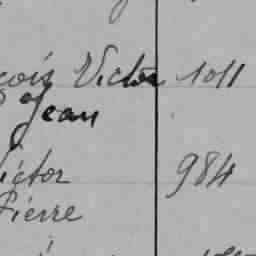 çois Victor 1011
Jean
Victor 984
Pierre